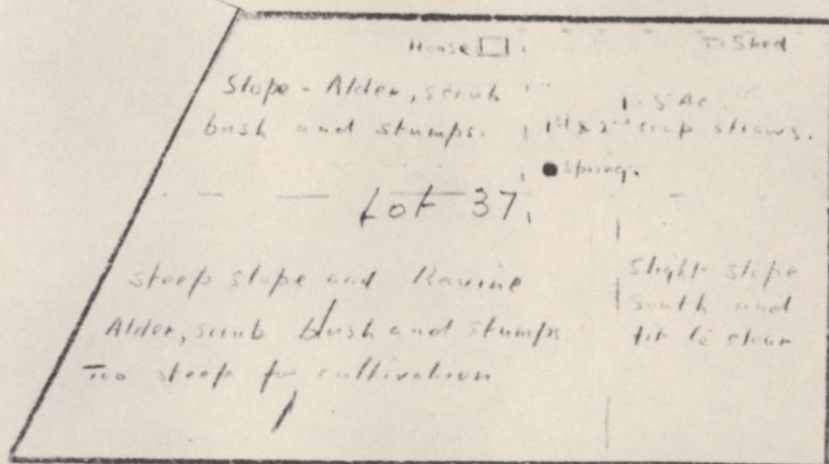 House
Shed
Slope - Alder, scrub
bush and stumps.
5 Ac.
1st & 2nd crop straws.
Spring.
Lot 37
Steep slope and Ravine
Alder, scrub bush and stumps
Too steep for cultivation
Slight slope
South and
fit to clear